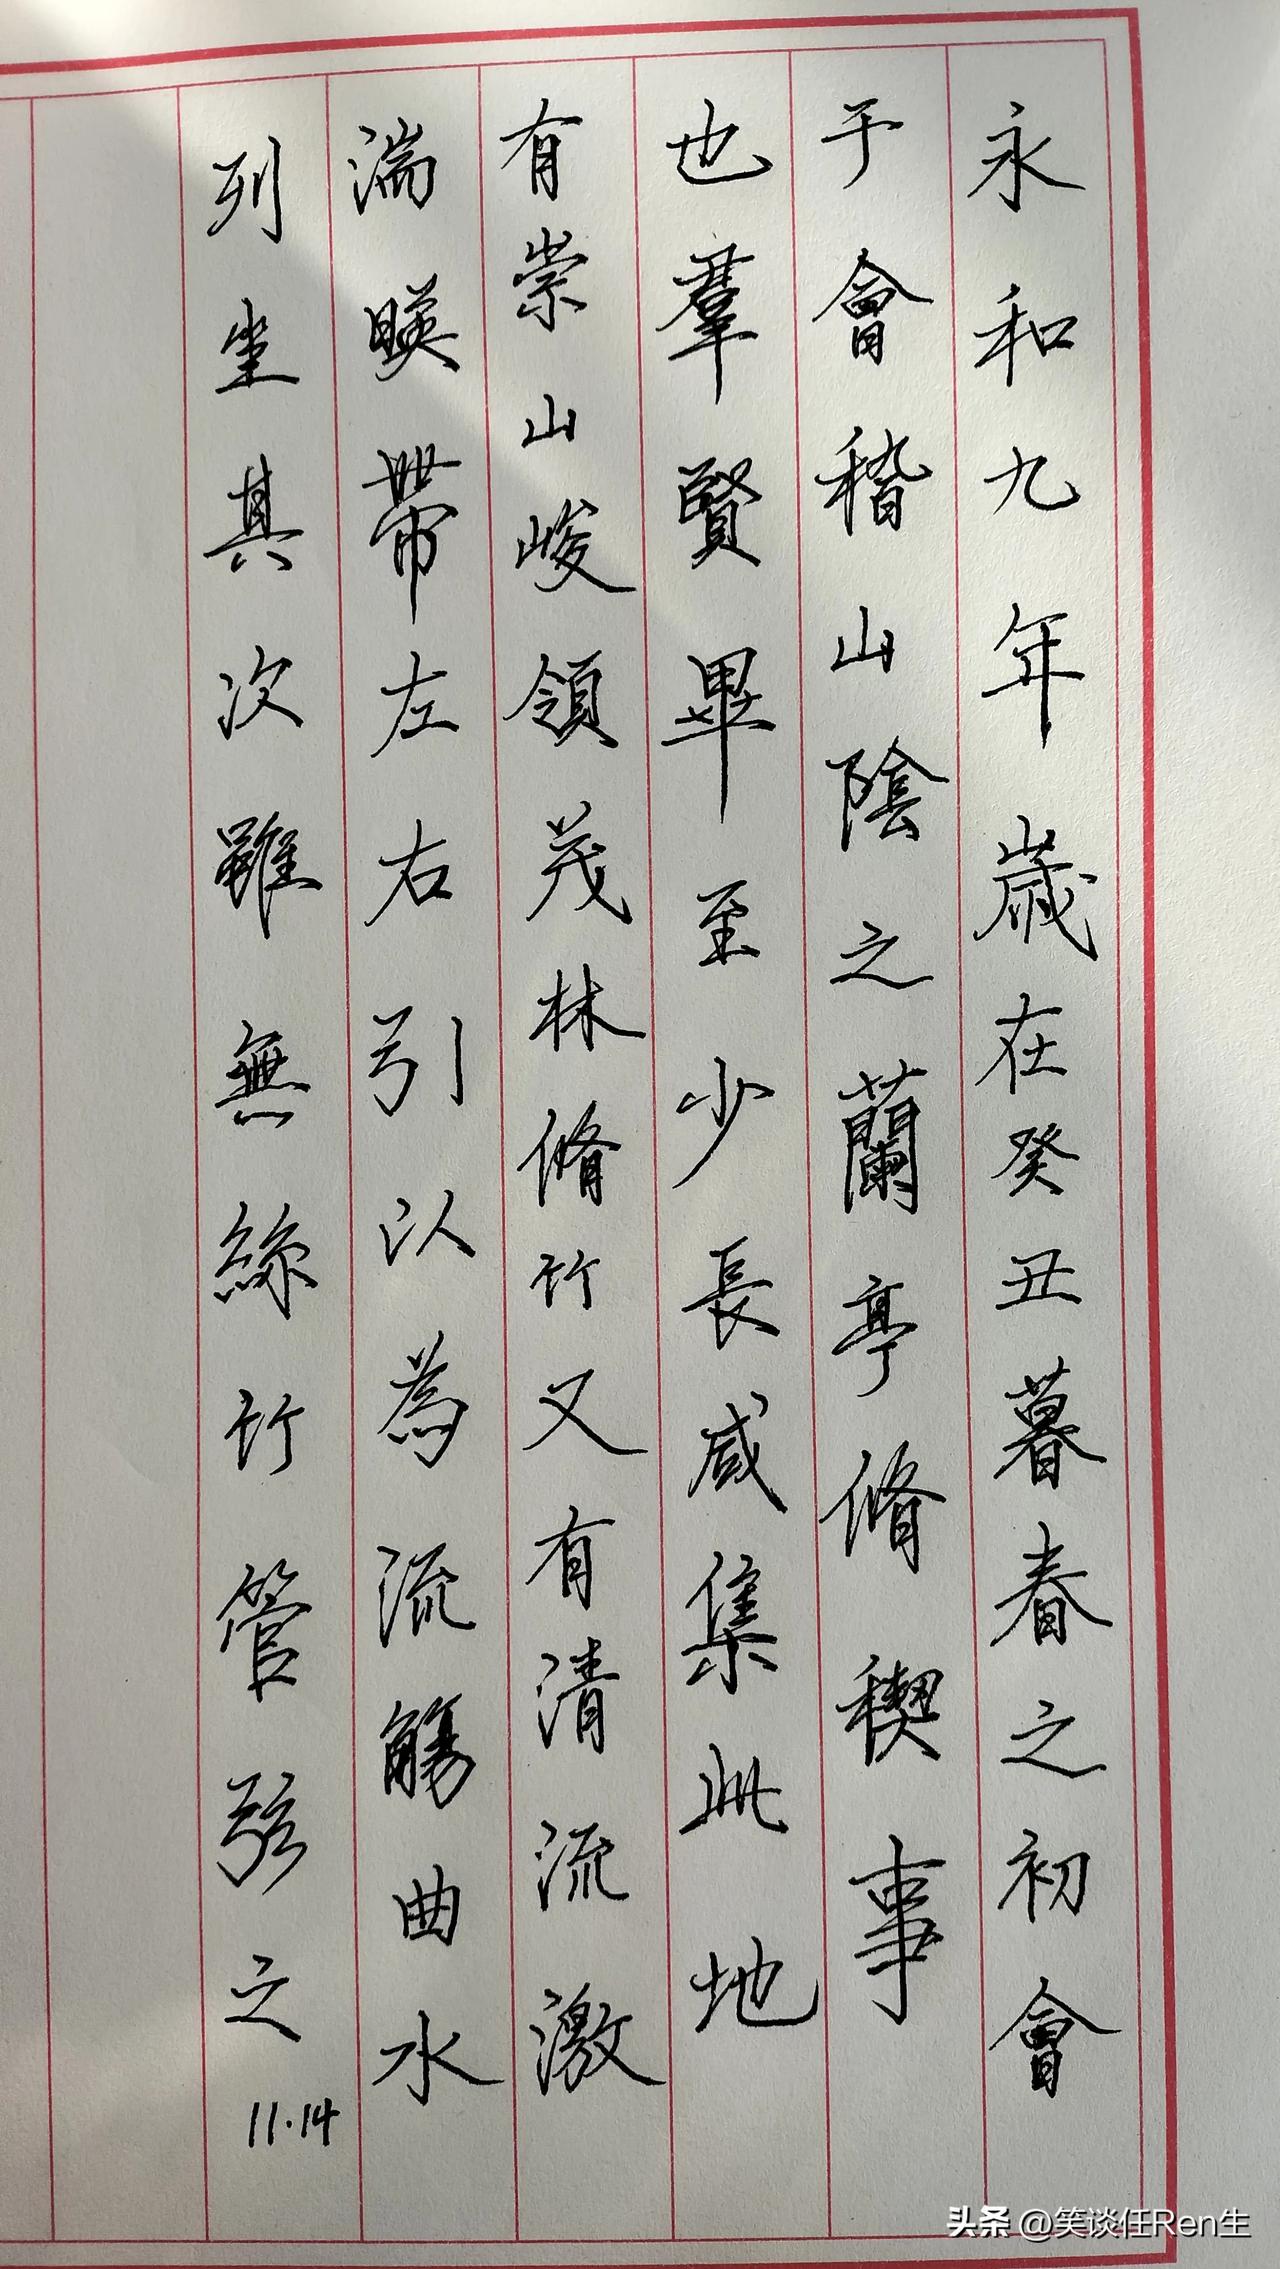 永和九年歲在癸丑暮春之初會
于會稽山陰之蘭亭脩稧事
也羣賢畢至少長咸集此地
有崇山峻領茂林脩竹又有清流激
湍暎帶左右引以為流觴曲水
列坐其次雖無絲竹管弦之
11.14
头条 @笑谈任Ren生